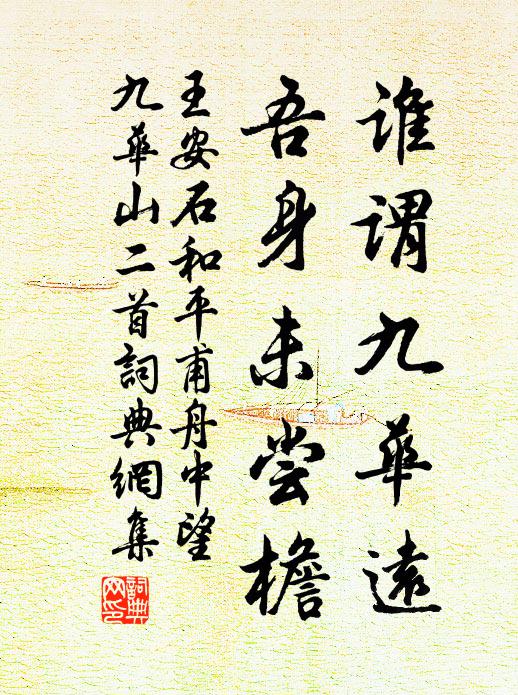 誰謂九華遠
吾身未尝檐
王安石和平甫舟中望
九華山二首詞典網集
詞典
网印